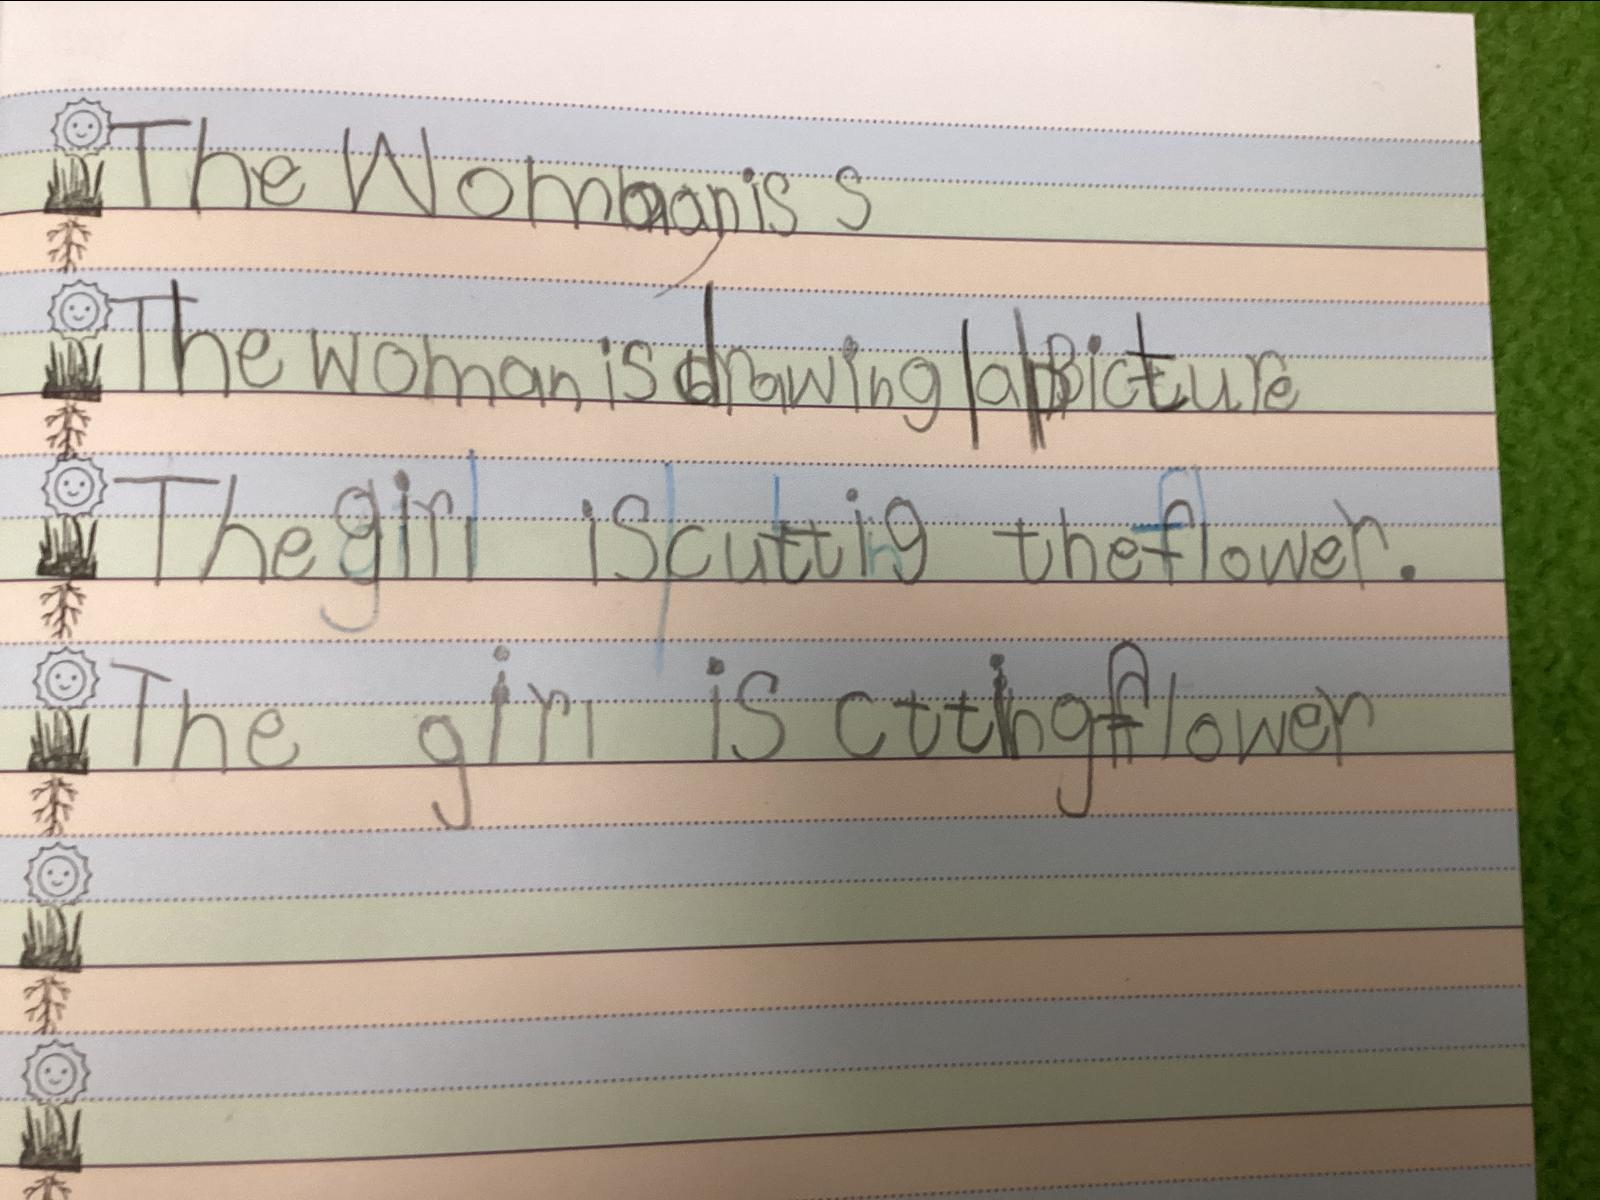 The Woman is s
The woman is drawing a picture
The girl is cutting the flower.
The girl is ctting flower